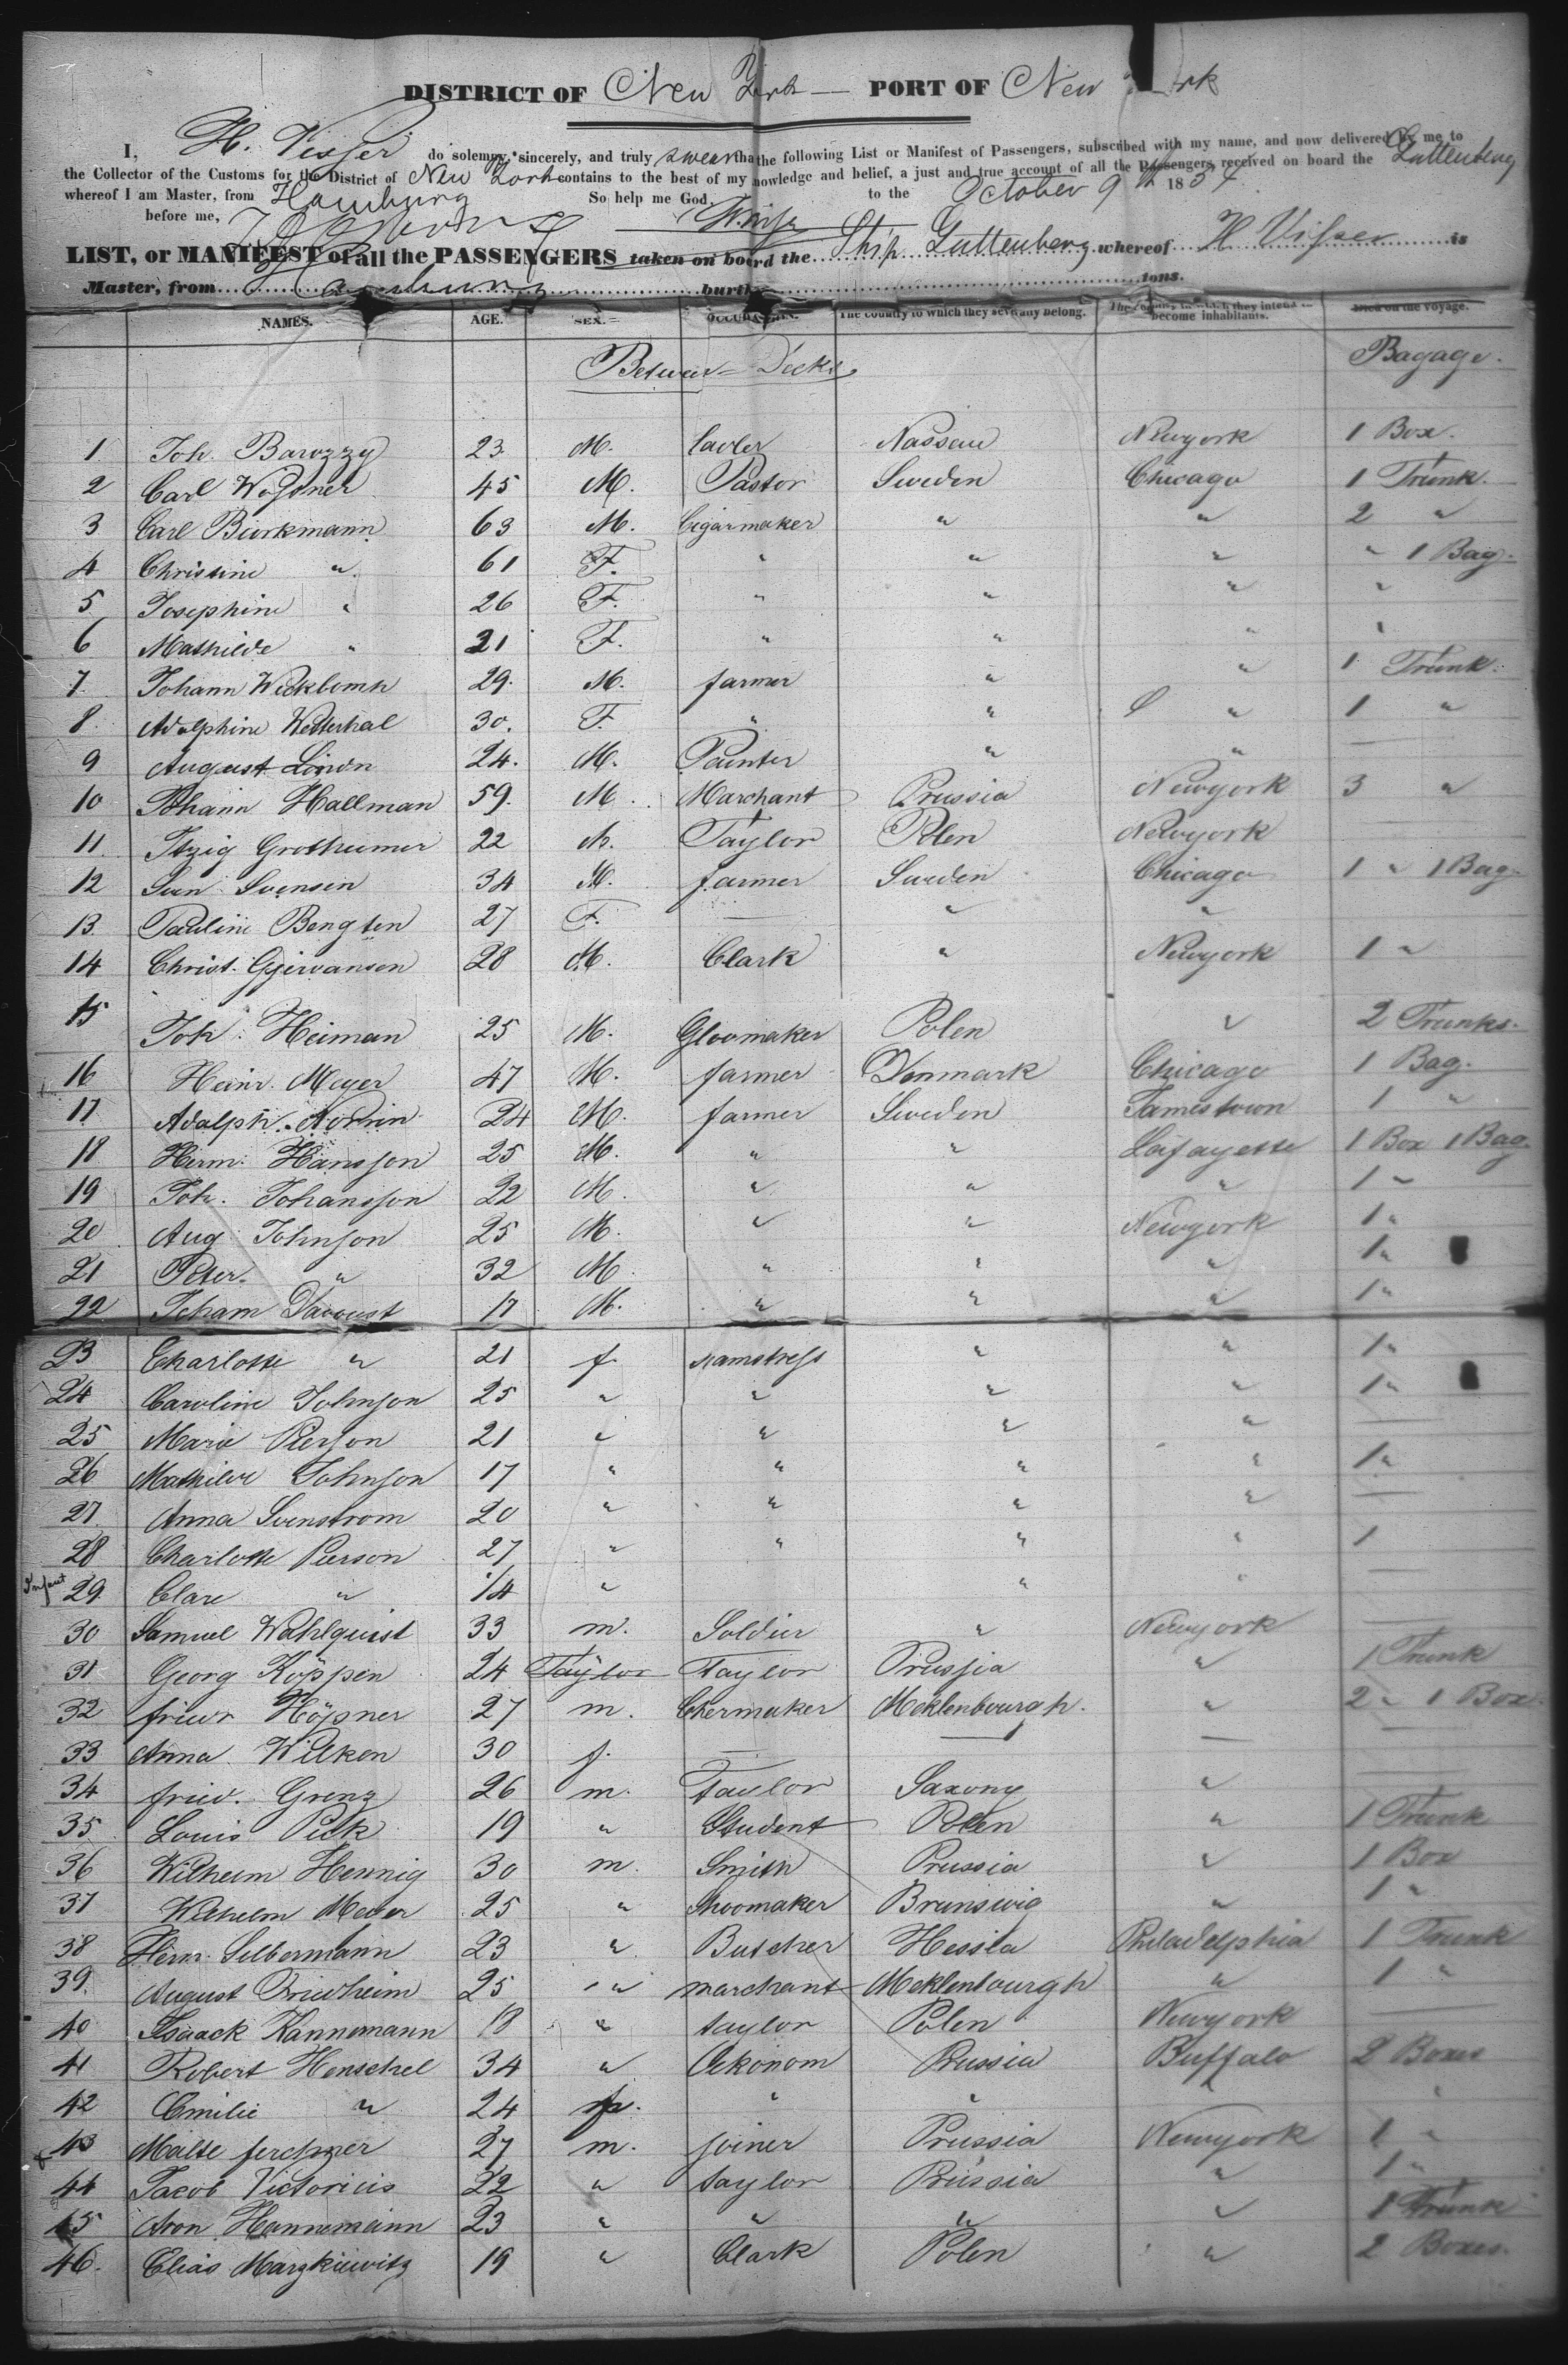 DISTRICT OF New York — PORT OF New York
I, H. Visser do solemny, sincerely, and truly swear that the following List or Manifest of Passengers, subscribed with my name, and now delivered by me to
the Collector of the Customs for the District of New York contains to the best of my knowledge and belief, a just and true account of all the Passengers received on board the Guttenberg
whereof I am Master, from Hamburg So help me God. to the October 9th 1854.
before me,
LIST, or MANIFEST of all the PASSENGERS taken on board the Ship Guttenberg whereof H Visser is
Master, from Hamburg burthen tons.
NAMES. AGE. SEX. OCCUPATION. The country to which they severally belong. The country to which they intend to become inhabitants. Died on the voyage.
Between Decks Bagage.
1 Joh. Barozzy 23 M. Nassau Newyork 1 Box.
2 Carl 45 M. Pastor Sweden Chicago 1 Trunk.
3 Carl Biorkmann 63 M. Cigarmaker " " 2 "
4 Christine " 61 F. " " " " 1 Bag.
5 Josephine " 26 F. " " " "
6 Mathilde " 21 F. " " " "
7 Johann Wicklomh 29. M. farmer " " 1 Trunk
8 Adolphine Wetterhal 30. F. " " " 1 "
9 August 24. M. Painter " " —
10 Johann Hallman 59. M. Marchant Prussia Newyork 3 "
11 Itzig Grotheimer 22 M. Taylor Polen Newyork —
12 Sven Svensen 34 M. farmer Sweden Chicago 1 " 1 Bag.
13 Pauline Bengten 27 F. — " "
14 Christ. 28 M. Clark " Newyork 1 "
15 Joh. Heiman 25 M. Gloomaker Polen " 2 Trunks.
16 Heinr. Meyer 47 M. farmer Denmark Chicago 1 Bag.
17 Adolph. Norlin 24 M. farmer Sweden Jamestown 1 "
18 Herm. Hansson 25 M. " " Lafayette 1 Box 1 Bag.
19 Joh. Johansson 22 M. " " " 1 "
20 Aug. Johnson 25 M. " " Newyork 1 "
21 Peter " 32 M " " " 1 "
22 Davoust 17 M. " " " 1 "
23 Charlotte " 21 f. seamstress " " 1 "
24 Caroline Johnson 25 " " " " 1 "
25 Marie Pierson 21 " " " " —
26 Mathilde Johnson 17 " " " " 1 "
27 Anna Svenstrom 20 " " " " —
28 Charlotte Pierson 27 " " " " 1
Infant 29 Clare " 1/4 " " " —
30 Samuel Wahlquist 33 m. Soldier " Newyork —
31 Georg Köppen 24 Taylor Taylor Prussia " 1 Trunk
32 Höpner 27 m. Meklenbourgh. " 2 " 1 Box.
33 Anna Wilken 30 f. — — — —
34 fried. Grenz 26 m. Taylor Saxony " —
35 Louis Pick 19 " Student Polen " 1 Trunk
36 Wilhelm Hennig 30 m. Smith Prussia " 1 Box
37 Wilhelm Meier 25 " Shoomaker Brunswig " 1 "
38 Herm. Silbermann 23 " Butcher Hessia Philadelphia 1 Trunk
39. August Friedheim 25 " marchant Meklenbourgh " 1 "
40 Isaack Kannemann 18 " taylor Polen Newyork —
41 Robert Henschel 34 " Oekonom Prussia Buffalo 2 Boxes
42 Emilie " 24 f. " " "
43 Malte ferchner 27 m. joiner Prussia Newyork 1 "
44 Jacob Victorius 22 " taylor Prussia " 1 "
45 Aron Hannemann 23 " " " " 1 Trunk
46. Elias Marzkiewitz 19 " Clark Polen " 2 Boxes.